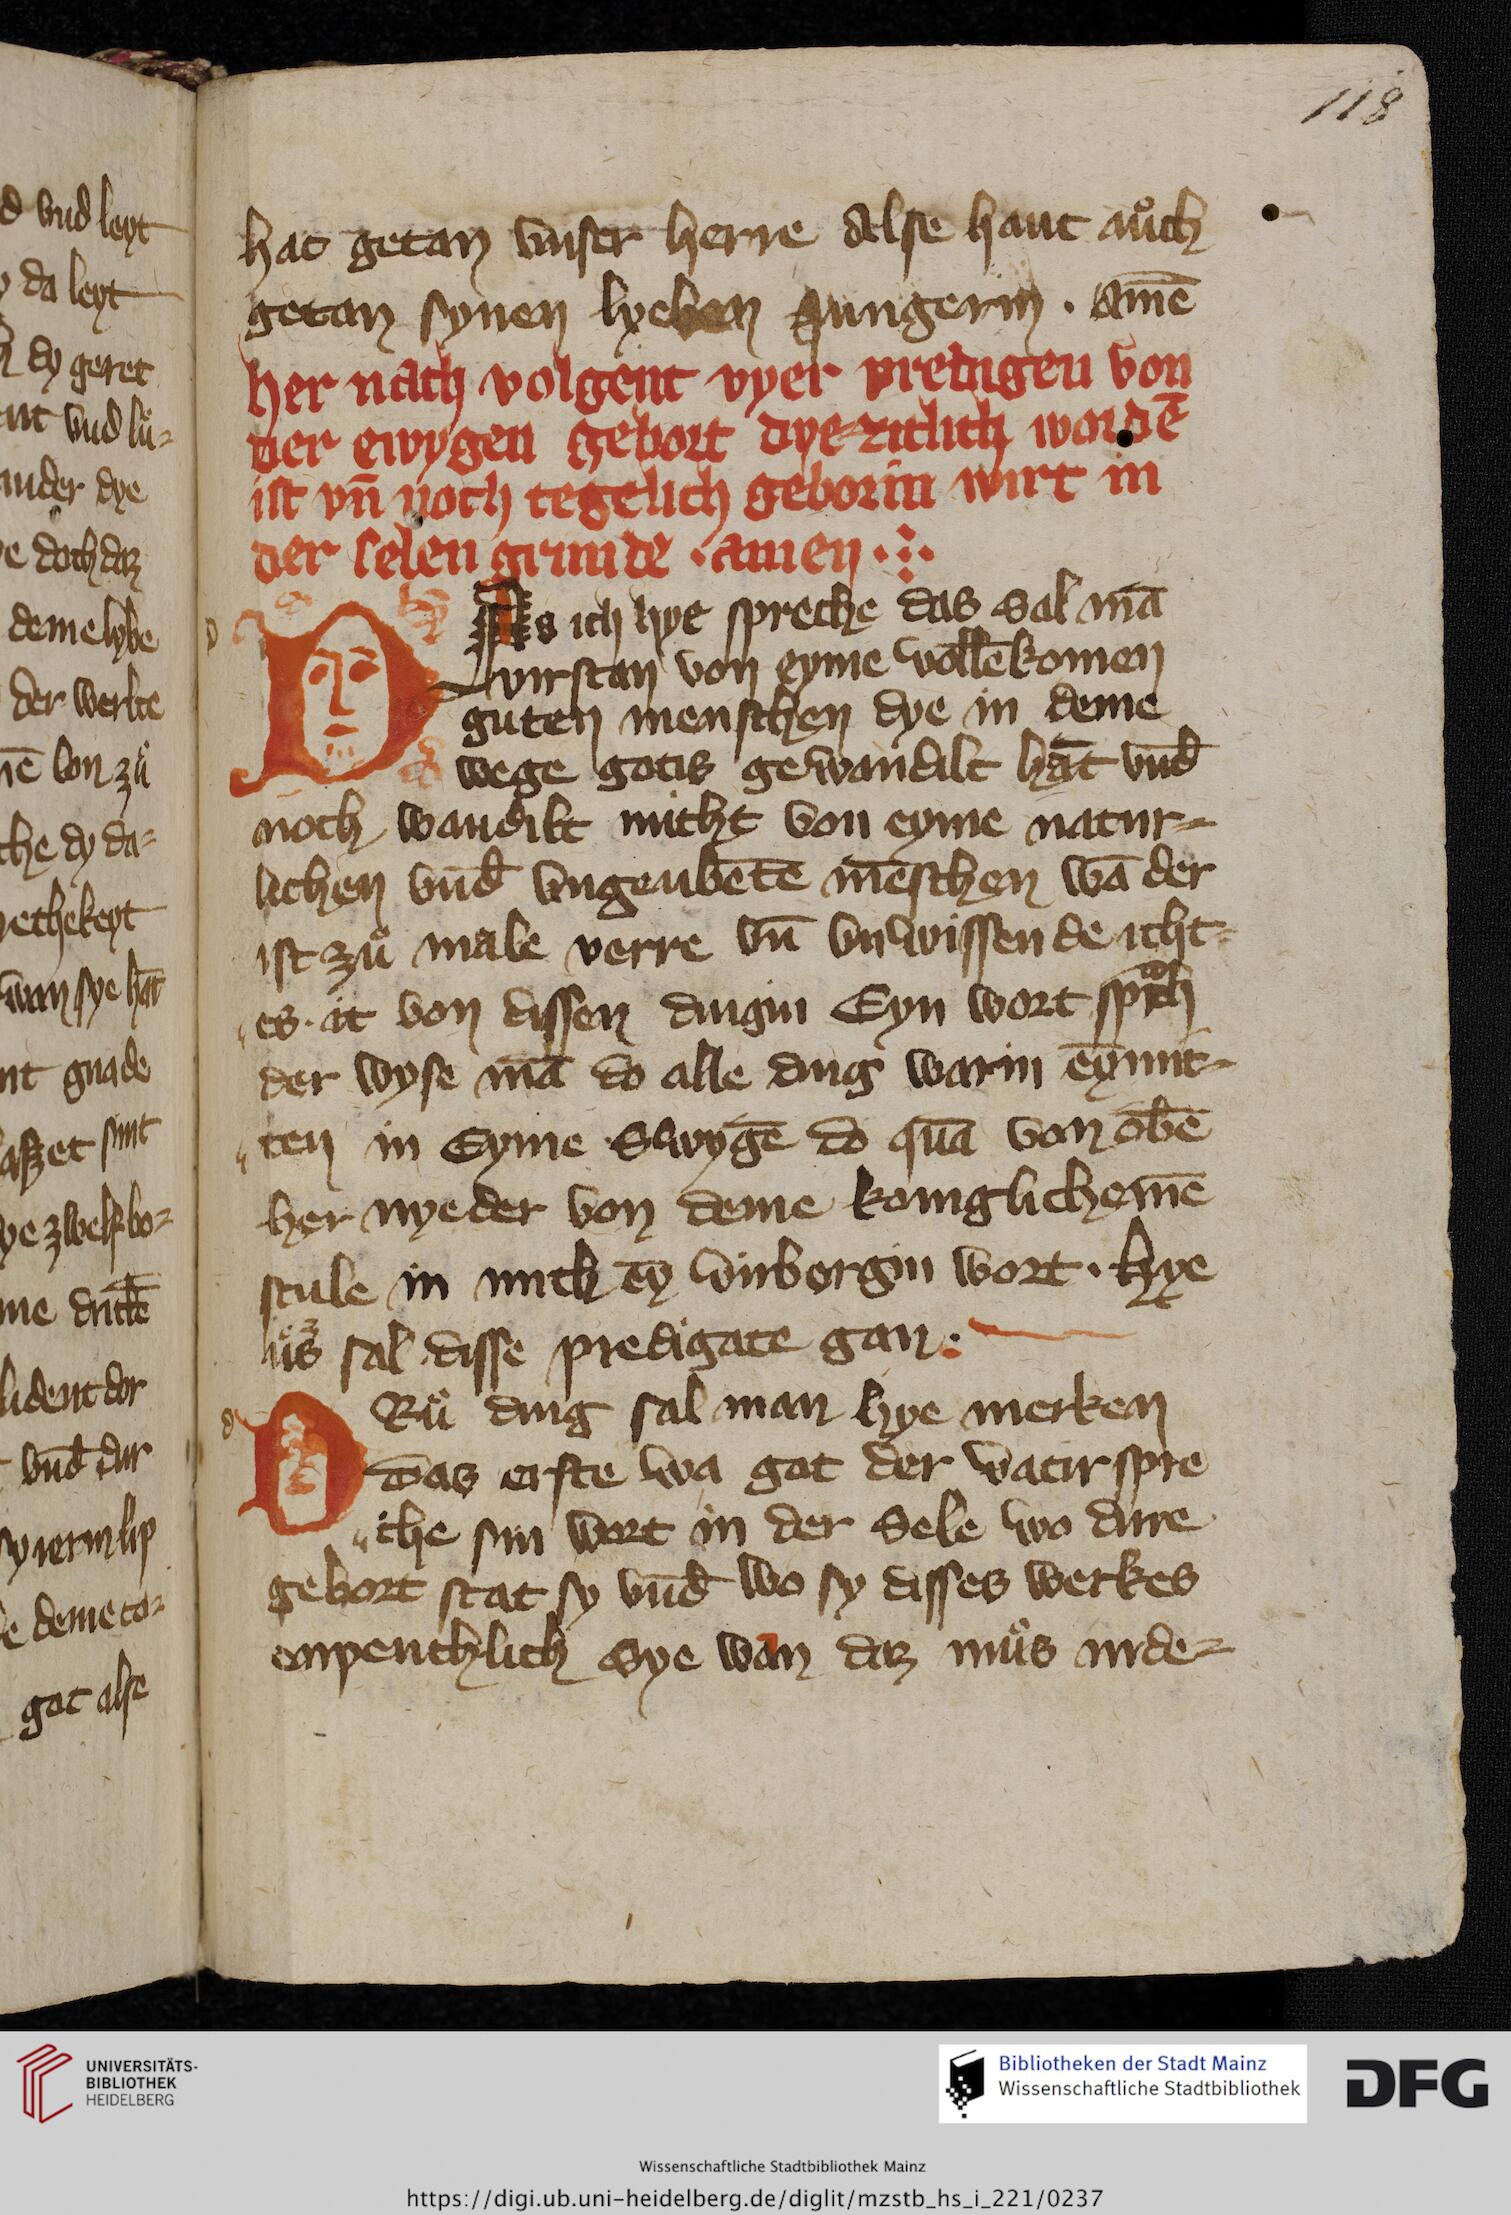 118
hat getan vnser herre Alse haut auͦch
getan synen lyeben Jungerin . Amē
her nach volgent vyer predigen von
der ewygen gebort dye zitlich wordē
ist vn̄ noch tegelich geborin wirt in
der selen grunde . amen .
D As ich hye spreche das sal mā
virstan von eyme vollēkomen
guten menschen dye in deme
wege gotis gewandilt hāt vnd̄
noch wandilt nicht von eyme natur-
lichen vnd̄ vngeubētē mēschen wā der
ist zuͦ male verre vn̄ vnwissende icht-
es it von dissen dingin Eyn wort sprach
der wyse mā do alle ding warin ēymit-
ten in Eyme Swygē do quā von obē
her nyeder von deme koniglichemē
stule in mich ēy virborgin wort . Hye
sal disse predigate gan
D Ruͦ ding sal man hye merken
Das erste wa got der vatir spre
che sin wort in der Sele wo dire
gebort stat sy vnd̄ wo sy disses werkes
enpenchlich Sye wan daz muͦs in de-
d vnd leyt
da leyt
dy geret
vnd luͦ-
ander dye
doch daz
deme lybe
der werlte
von zuͦ
che dy da-
wan sye hāt
gnade
sint
zwelfbo-
lident dor
vnd̄ dar
deme to-
got alse
UNIVERSITÄTS-
BIBLIOTHEK
HEIDELBERG
Bibliotheken der Stadt Mainz
Wissenschaftliche Stadtbibliothek
DFG
Wissenschaftliche Stadtbibliothek Mainz
https://digi.ub.uni-heidelberg.de/diglit/mzstb_hs_i_221/0237